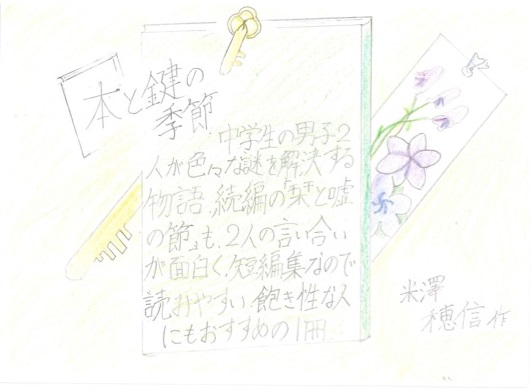 本と鍵の
季節
中学生の男子2
人が色々な謎を解決する
物語。続編の『栞と嘘
の節』も、2人の言い合い
が面白く、短編集なので
読みやすい。飽き性な人
にもおすすめの1冊
米澤
穂信 作